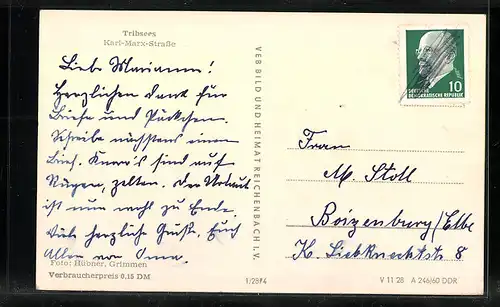 Tribsees
Karl-Marx-Straße
Liebe Marianne!
Herzlichen Dank für
Briefe und Päckchen.
Schreibe nächstens einen
Brief. sind auf
Rügen, zelten. Der Urlaub
ist nun auch zu Ende.
Viele herzliche Grüße, Euch
Allen von Oma.
Foto: Hübner, Grimmen
Verbraucherpreis 0,15 DM
VEB BILD UND HEIMAT REICHENBACH I. V.
1/2874
10
DEUTSCHE
DEMOKRATISCHE REPUBLIK
Frau
M. Stoll
Boizenburg/Elbe
K. Liebknechtstr. 8
V 11 28 A 246/60 DDR